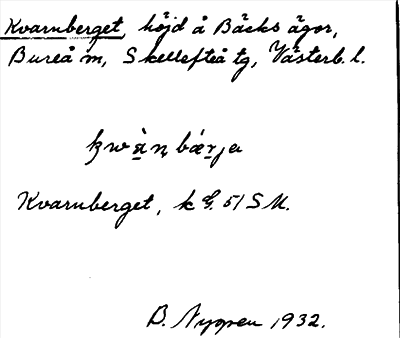 Kvarnberget, höjd å Bäcks ägor,
Bureå m, Skellefteå tg, Västerb. l.
Kvarnberget, k 51 S M.
B. Nygren 1932.